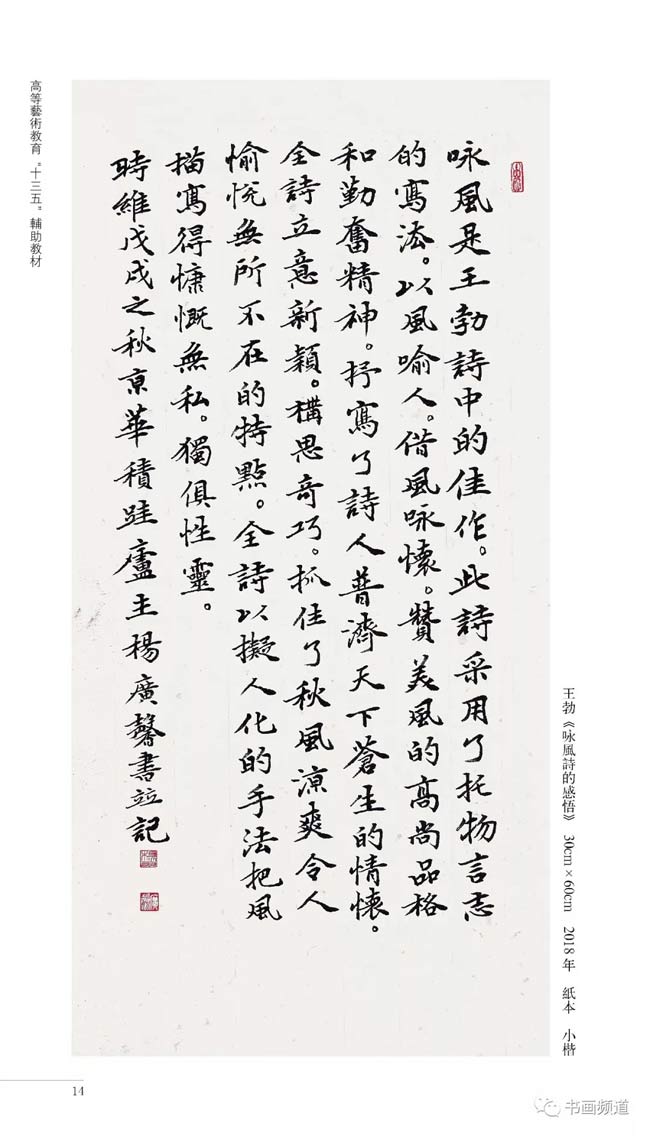 高等藝術教育“十三五”輔助教材
咏風是王勃詩中的佳作。此詩采用了托物言志
的寫法。以風喻人。借風咏懷。贊美風的高尚品格
和勤奮精神。抒寫了詩人普濟天下蒼生的情懷。
全詩立意新穎。構思奇巧。抓住了秋風涼爽令人
愉悅無所不在的特點。全詩以擬人化的手法把風
描寫得慷慨無私。獨俱性靈。
時維戊戌之秋京華積跬廬主楊廣馨書並記
王勃《咏風詩的感悟》 30cm×60cm 2018年 紙本 小楷
14
书画频道